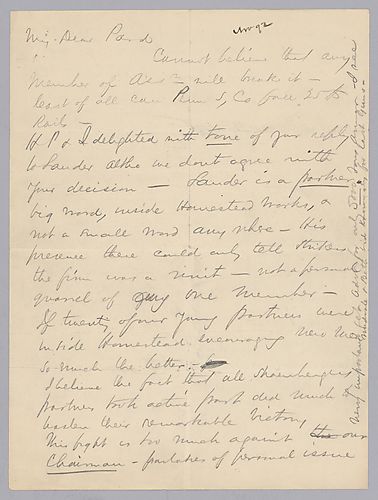 Nov 92
My Dear Pard
Cannot believe that any
Member of Assn will break it —
least of all can Penn S. Co.
Rails —
H P & I delighted with tone of your reply
to Lauder altho we dont agree with
Your decision — Lauder is a partner
big word, inside Homestead Works, &
not a small word anywhere — His
presence there could only tell strikers
the firm was a unit — not a personal
quarrel of any one member —
If twenty of our young partners were
inside Homestead encouraging new men
so much the better —
I believe the fact that all
partners took active part did much
their remarkable victory
This fight is too much against our
Chairman — partakes of personal issue
Very important